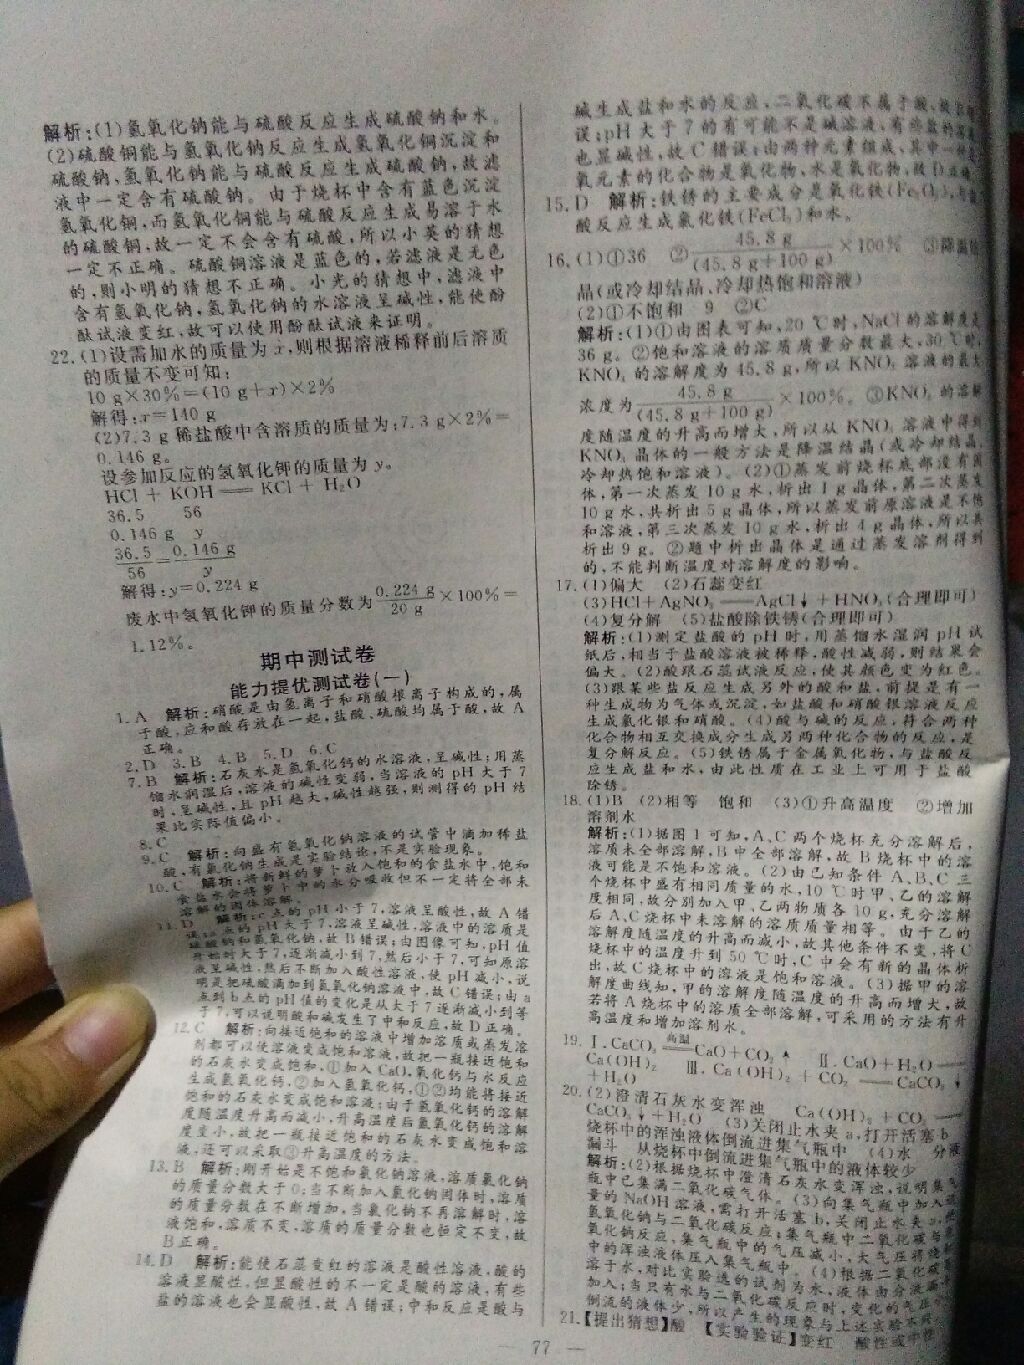 解析:(1)氢氧化钠能与硫酸反应生成硫酸钠和水。
(2)硫酸铜能与氢氧化钠反应生成氢氧化铜沉淀和
硫酸钠,氢氧化钠能与硫酸反应生成硫酸钠,故滤
液中一定含有硫酸钠。由于烧杯中含有蓝色沉淀
氢氧化铜,而氢氧化铜能与硫酸反应生成易溶于水
的硫酸铜,故一定不会含有硫酸,所以小英的猜想
一定不正确。硫酸铜溶液是蓝色的,若滤液是无色
的,则小明的猜想不正确。小光的猜想中,滤液中
含有氢氧化钠,氢氧化钠的水溶液呈碱性,能使酚
酞试液变红,故可以使用酚酞试液来证明。
22.(1)设需加水的质量为x,则根据溶液稀释前后溶质
的质量不变可知:
10 g×30%=(10 g+x)×2%
解得:x=140 g
(2)7.3 g稀盐酸中含溶质的质量为:7.3 g×2%=
0.146 g。
设参加反应的氢氧化钾的质量为y。
HCl + KOH══KCl + H₂O
36.5 56
0.146 g y
36.5/56=0.146 g/y
解得:y=0.224 g
废水中氢氧化钾的质量分数为0.224 g/20 g×100%=
1.12%。
期中测试卷
能力提优测试卷(一)
1.A 解析:硝酸是由氢离子和硝酸根离子构成的,属
于酸,应和酸存放在一起,盐酸、硫酸均属于酸,故A
正确。
2.D 3.B 4.B 5.D 6.C
7.B 解析:石灰水是氢氧化钙的水溶液,呈碱性;用蒸
馏水润湿后,溶液的碱性变弱,当溶液的pH大于7
时,呈碱性,且pH越大,碱性越强,则测得的pH结
果比实际值偏小。
8.C
9.C 解析:向盛有氢氧化钠溶液的试管中滴加稀盐
酸,有氯化钠生成是实验结论,不是实验现象。
10.C 解析:将新鲜的萝卜放入饱和的食盐水中,饱和
食盐水会将萝卜中的水分吸收但不一定将全部未
溶解的固体溶解。
11.D 解析:c点的pH小于7,溶液呈酸性,故A错
误;a点的pH大于7,溶液呈碱性,溶液中的溶质是
硫酸钠和氢氧化钠,故B错误;由图像可知,pH值
开始时大于7,逐渐减小到7,然后小于7,可知原溶
液呈碱性,然后不断加入酸性溶液,使pH减小,说
明是把硫酸滴加到氢氧化钠溶液中,故C错误;由a
点到b点的pH值的变化是从大于7逐渐减小到等
于7,可以说明酸和碱发生了中和反应,故D正确。
12.C 解析:向接近饱和的溶液中增加溶质或蒸发溶
剂都可以使溶液变成饱和溶液,故把一瓶接近饱和
的石灰水变成饱和,①加入CaO,氧化钙与水反应
生成氢氧化钙,②加入氢氧化钙,①②均能将接近
饱和的石灰水变成饱和溶液;由于氢氧化钙的溶解
度随温度升高而减小,升高温度后氢氧化钙的溶解
度变小,故把一瓶接近饱和的石灰水变成饱和溶
液,还可以采取③升高温度的方法。
13.B 解析:刚开始是不饱和氯化钠溶液,溶质氯化钠
的质量分数大于0;当不断加入氯化钠固体时,溶质
的质量分数在不断增加,当氯化钠不再溶解时,溶
液饱和,溶质不变,溶质的质量分数也恒定不变,故
B正确。
14.D 解析:能使石蕊变红的溶液是酸性溶液,酸的
溶液显酸性,但显酸性的不一定是酸的溶液,有些
盐的溶液也会显酸性,故A错误;中和反应是酸与
碱生成盐和水的反应,二氧化碳不属于酸,故
误;pH大于7的有可能不是碱溶液,有些盐的溶液
也显碱性,故C错误;由两种元素组成,其中一种是
氧元素的化合物是氧化物,水是氧化物,故D正确。
15.D 解析:铁锈的主要成分是氧化铁(Fe₂O₃),与盐
酸反应生成氯化铁(FeCl₃)和水。
16.(1)①36 ②45.8 g/(45.8 g+100 g)×100% ③降温结
晶(或冷却结晶、冷却热饱和溶液)
(2)①不饱和 9 ②C
解析:(1)①由图表可知,20 ℃时,NaCl的溶解度是
36 g。②饱和溶液的溶质质量分数最大,30 ℃时,
KNO₃的溶解度为45.8 g,所以KNO₃溶液的最大
浓度为45.8 g/(45.8 g+100 g)×100%。③KNO₃的溶解
度随温度的升高而增大,所以从KNO₃溶液中得到
KNO₃晶体的一般方法是降温结晶(或冷却结晶、
冷却热饱和溶液)。(2)①蒸发前烧杯底部没有固
体,第一次蒸发10 g水,析出1 g晶体,第二次蒸发
10 g水,共析出5 g晶体,所以蒸发前原溶液是不饱
和溶液,第三次蒸发10 g水,析出4 g晶体,所以共
析出9 g。②题中析出晶体是通过蒸发溶剂得到
的,不能判断温度对溶解度的影响。
17.(1)偏大 (2)石蕊变红
(3)HCl+AgNO₃══AgCl↓+HNO₃(合理即可)
(4)复分解 (5)盐酸除铁锈(合理即可)
解析:(1)测定盐酸的pH时,用蒸馏水湿润pH试
纸后,相当于盐酸溶液被稀释,酸性减弱,则结果会
偏大。(2)酸跟石蕊试液反应,使其颜色变为红色。
(3)跟某些盐反应生成另外的酸和盐,前提是有一
种生成物为气体或沉淀,如盐酸和硝酸银溶液反应
生成氯化银和硝酸。(4)酸与碱的反应,符合两种
化合物相互交换成分生成另两种化合物的反应,是
复分解反应。(5)铁锈属于金属氧化物,与盐酸反
应生成盐和水,由此性质在工业上可用于盐酸
除锈。
18.(1)B (2)相等 饱和 (3)①升高温度 ②增加
溶剂水
解析:(1)据图1可知,A、C两个烧杯充分溶解后,
溶质未全部溶解,B中全部溶解,故B烧杯中的溶
液可能是不饱和溶液。(2)由已知条件A、B、C三
个烧杯中盛有相同质量的水,10 ℃时甲、乙的溶解
度相同,故分别加入甲、乙两物质各10 g,充分溶解
后A、C烧杯中未溶解的溶质质量相等。由于乙的
溶解度随温度的升高而减小,故其他条件不变,将C
烧杯中的温度升到50 ℃时,C中会有新的晶体析
出,故C烧杯中的溶液是饱和溶液。(3)据甲的溶
解度曲线知,甲的溶解度随温度的升高而增大,故
若将A烧杯中的溶质全部溶解,可采用的方法有升
高温度和增加溶剂水。
19.Ⅰ.CaCO₃ 高温══CaO+CO₂↑ Ⅱ.CaO+H₂O══
Ca(OH)₂ Ⅲ.Ca(OH)₂+CO₂══CaCO₃↓
+H₂O
20.(2)澄清石灰水变浑浊 Ca(OH)₂+CO₂══
CaCO₃↓+H₂O (3)关闭止水夹a,打开活塞b
烧杯中的浑浊液体倒流进集气瓶中 (4)水 分液
漏斗 从烧杯中倒流进集气瓶中的液体较少
解析:(2)根据烧杯中澄清石灰水变浑浊,说明集气
瓶中已集满二氧化碳气体。(3)向集气瓶中加入适
量的NaOH溶液,需打开活塞b,关闭止水夹a,使
氢氧化钠与二氧化碳反应;集气瓶中二氧化碳与氢
氧化钠反应,集气瓶中的气压减小,大气压将烧杯
中的浑浊液体压入集气瓶中。(4)根据二氧化碳能
溶于水,对比实验选的试剂为水,液体由分液漏斗
加入;当只有水与二氧化碳反应时,变化的气压小,
倒流的液体少,所以产生的现象与上述实验不同。
21.【提出猜想】酸 【实验验证】变红 酸性或中性
— 77 —